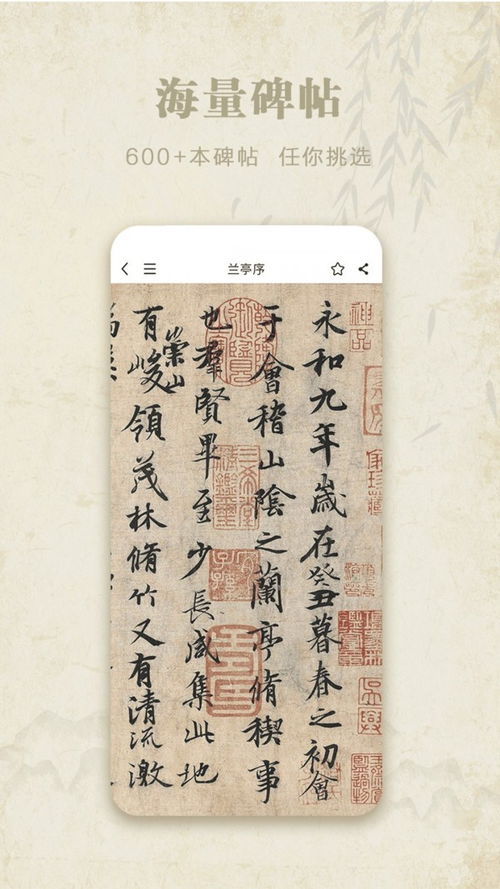 海量碑帖
600+本碑帖 任你挑选
兰亭序
永和九年歲在癸丑暮春之初會
于會稽山陰之蘭亭脩稧事
也羣賢畢至少長咸集此地
有崇山峻領茂林脩竹又有清流激
神品